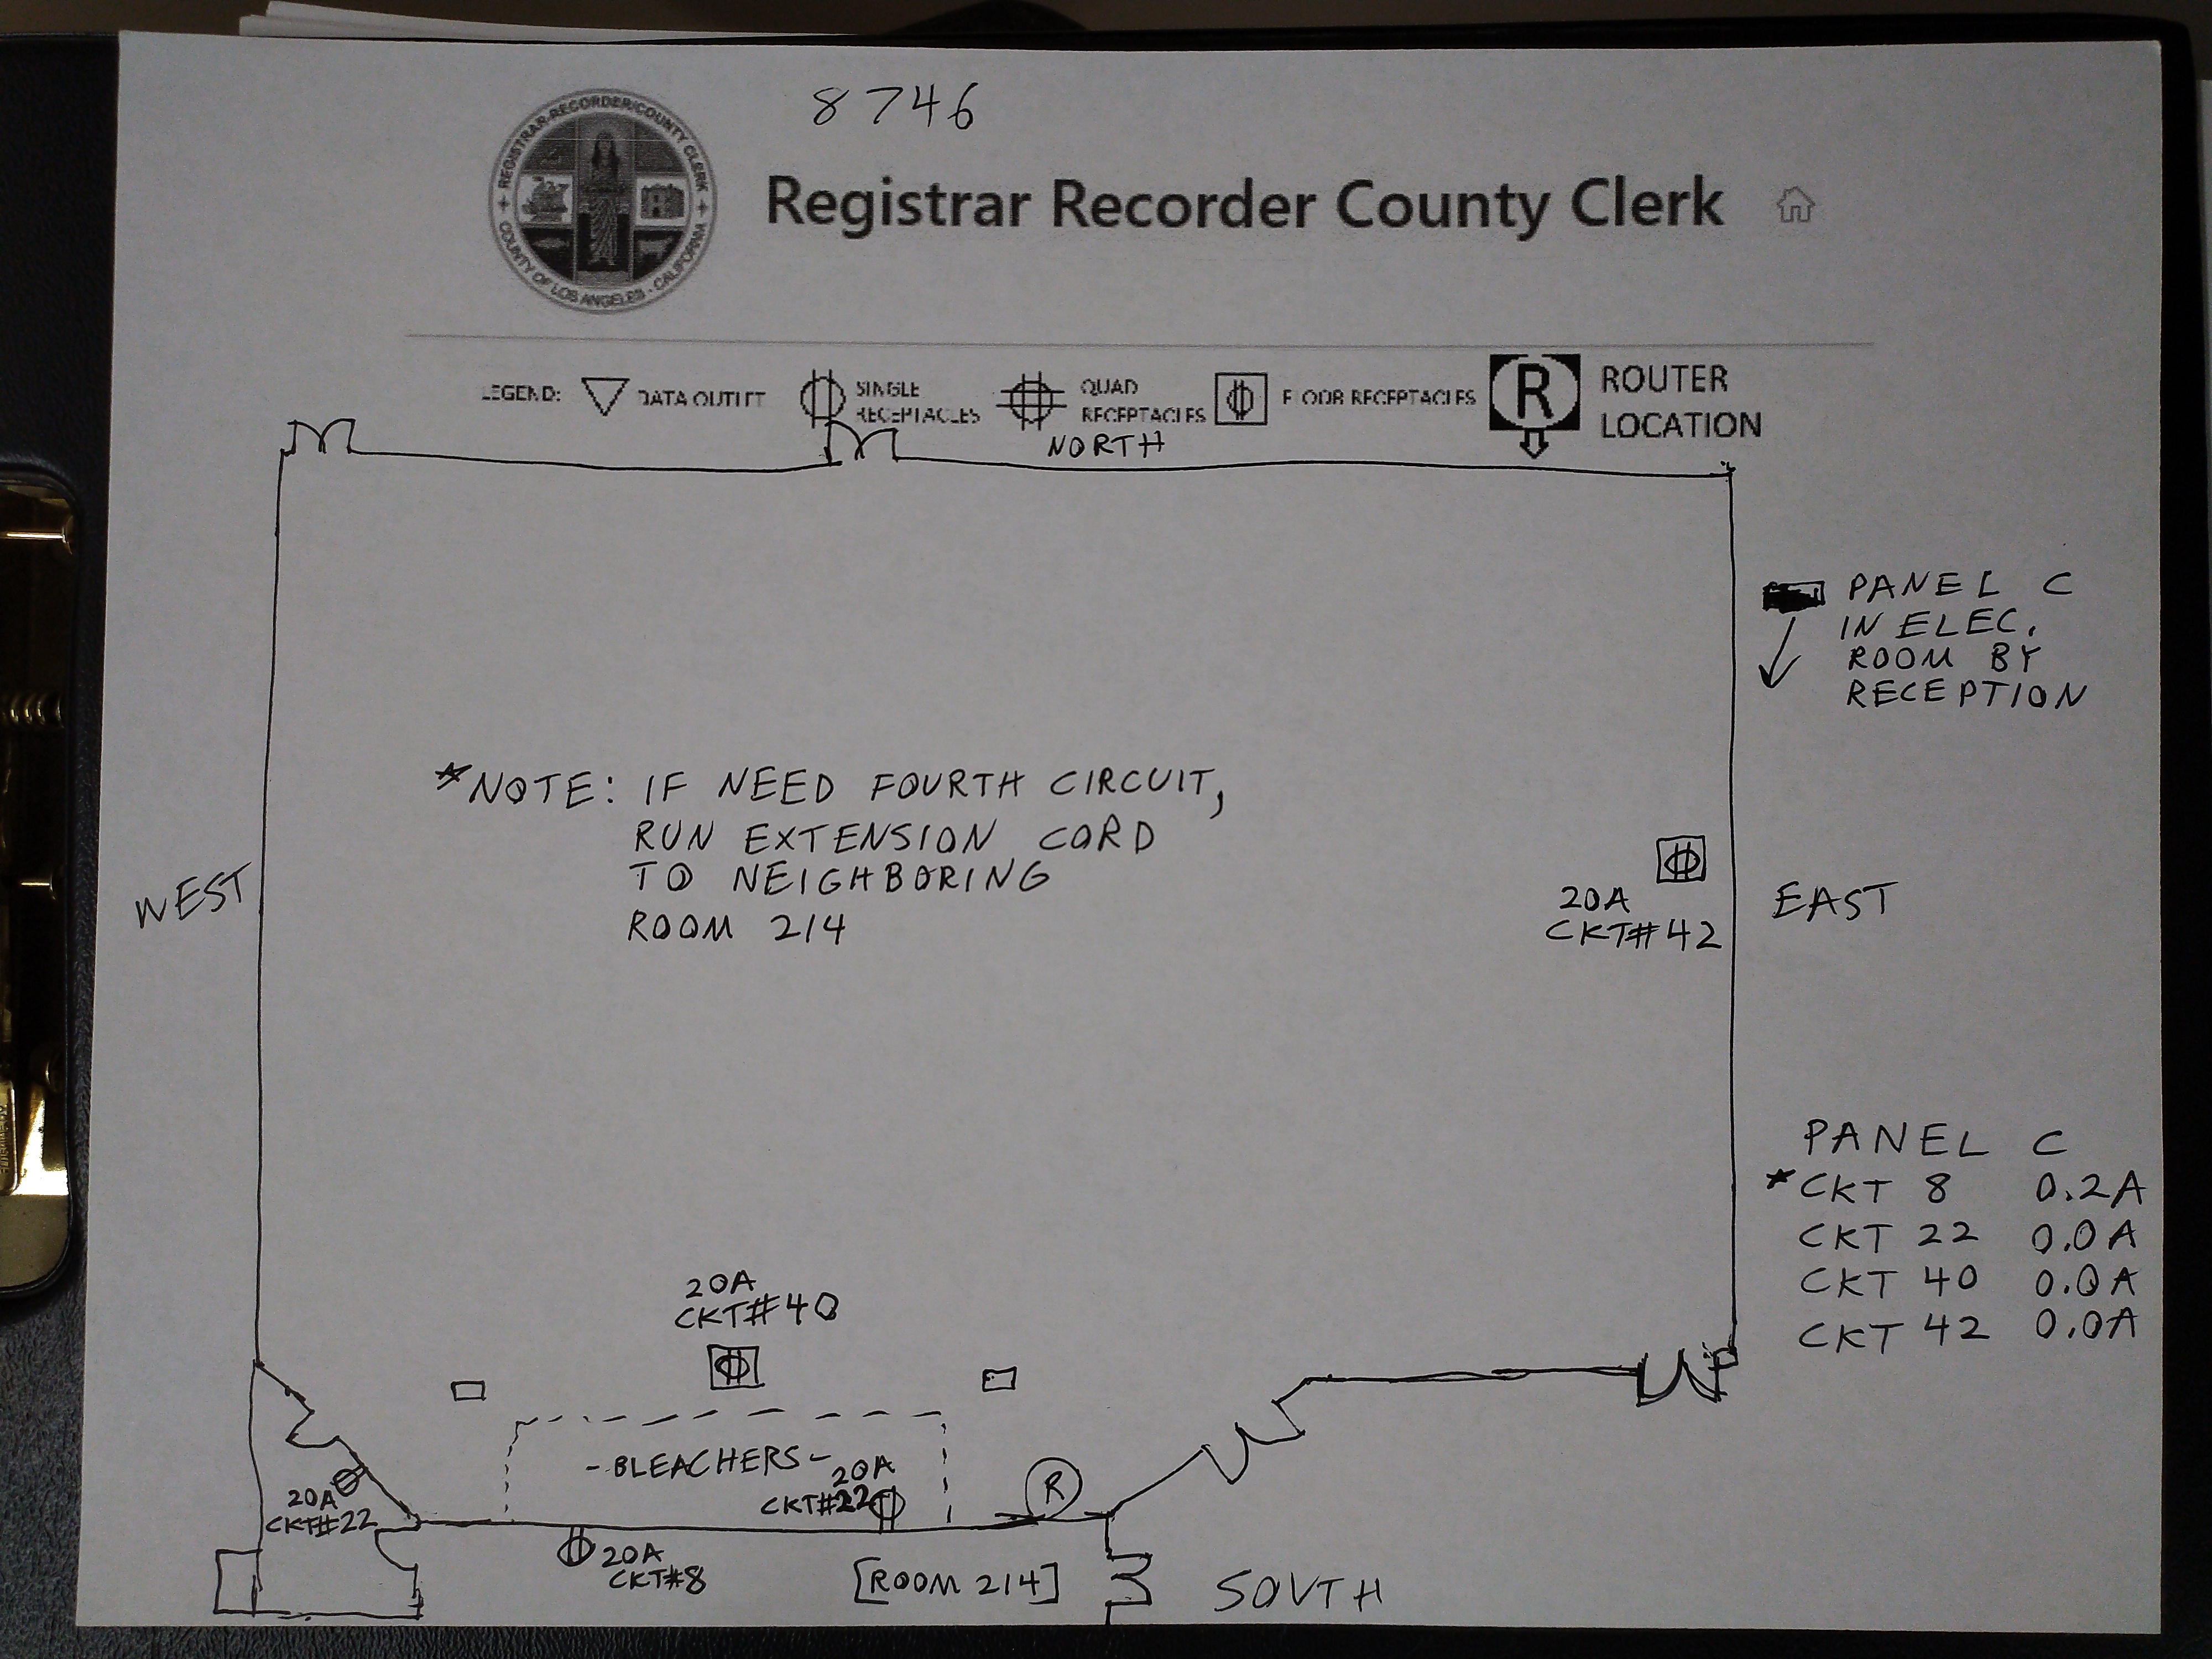 8746
REGISTRAR-RECORDER/COUNTY CLERK
COUNTY OF LOS ANGELES - CALIFORNIA
Registrar Recorder County Clerk
LEGEND: DATA OUTLET SINGLE RECEPTACLES QUAD RECEPTACLES FLOOR RECEPTACLES R ROUTER LOCATION
NORTH
PANEL C
IN ELEC.
ROOM BY
RECEPTION
*NOTE: IF NEED FOURTH CIRCUIT,
RUN EXTENSION CORD
TO NEIGHBORING
ROOM 214
WEST
EAST
20A
CKT#42
PANEL C
*CKT 8 0.2A
CKT 22 0.0A
CKT 40 0.0A
CKT 42 0.0A
20A
CKT#40
-BLEACHERS-
20A
CKT#22
R
20A
CKT#22
20A
CKT#8
[ROOM 214]
SOUTH